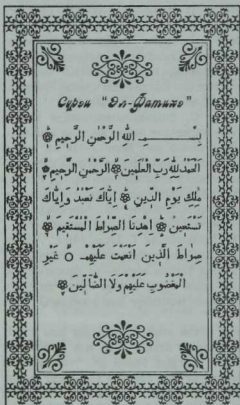 Сүрəи "Əл-Фатиһə"
بِسْــــــمِ اللهِ الرَّحْمٰنِ الرَّحِيمِ ۝
اَلْحَمْدُ لِلّٰهِ رَبِّ الْعٰلَمِينَ ۝ اَلرَّحْمٰنِ الرَّحِيمِ ۝
مٰلِكِ يَوْمِ الدِّينِ ۝ اِيَّاكَ نَعْبُدُ وَاِيَّاكَ
نَسْتَعِينُ ۝ اِهْدِنَا الصِّرَاطَ الْمُسْتَقِيمَ ۝
صِرَاطَ الَّذِينَ اَنْعَمْتَ عَلَيْهِمْ ۝ غَيْرِ
الْمَغْضُوبِ عَلَيْهِمْ وَلَا الضَّالِّينَ ۝